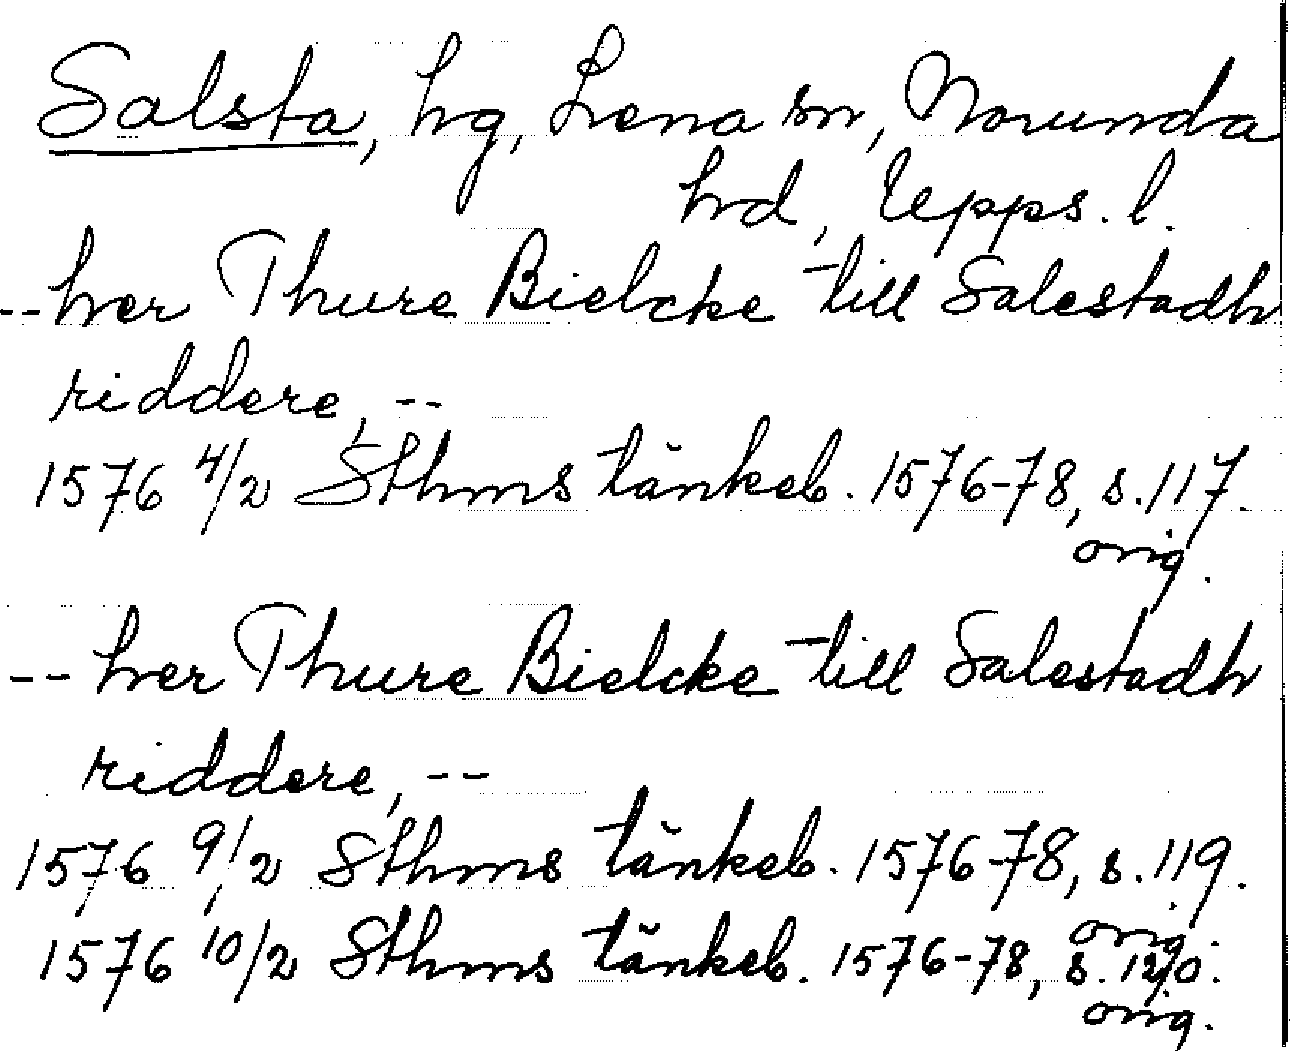 Salsta, hg, Lena sn, Norunda
hrd, Upps. l.
--her Thure Bielcke till Salestadh
riddere, --
1576 4/2 Sthms tänkeb. 1576-78, s. 117.
orig.
-- her Thure Bielcke till Salestadh
riddere, --
1576 9/2 Sthms tänkeb. 1576-78, s. 119.
orig.
1576 10/2 Sthms tänkeb. 1576-78, s. 120.
orig.